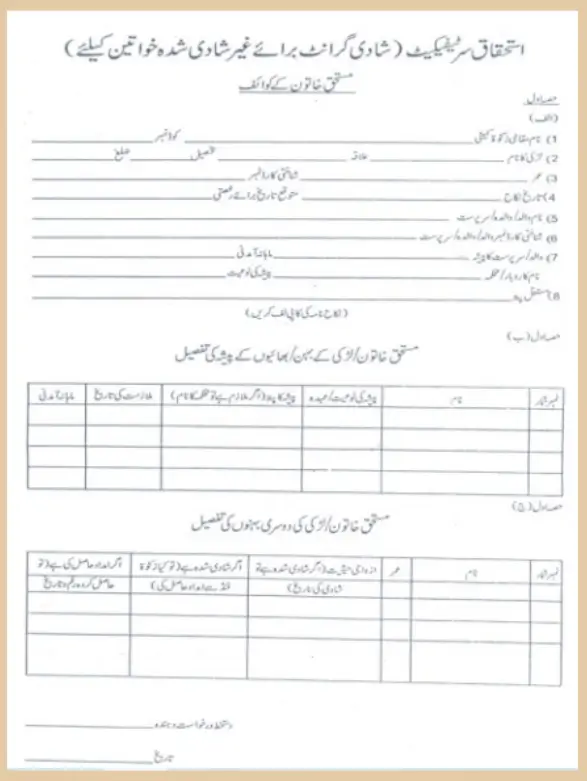 استحقاق سرٹیفکیٹ (شادی گرانٹ برائے غیر شادی شدہ خواتین کیلئے)
مستحق خاتون کے کوائف
حصہ اول
(الف)
1) نام مقامی زکوٰۃ کمیٹی ________ کوڈ نمبر ________
2) لڑکی کا نام ________ علاقہ ________ تحصیل ________ ضلع ________
3) عمر ________ شناختی کارڈ نمبر ________
4) تاریخ نکاح ________ متوقع تاریخ برائے رخصتی ________
5) نام والد/والدہ/سرپرست ________
6) شناختی کارڈ نمبر والد/والدہ/سرپرست ________
7) والد/سرپرست کا پیشہ ________ ماہانہ آمدنی ________
نام کاروبار/محکمہ ________ پیشہ کی نوعیت ________
8) مستقل پتہ ________
(نکاح نامہ کی کاپی لف کریں)
حصہ اول (ب)
مستحق خاتون/لڑکی کے بہن/بھائیوں کے پیشہ کی تفصیل
نمبر شمار | نام | پیشہ کی نوعیت/عہدہ | پیشہ کا پتہ (اگر ملازم ہے تو محکمہ کا نام) | ملازمت کی تاریخ | ماہانہ آمدنی
حصہ اول (ج)
مستحق خاتون/لڑکی کی دوسری بہنوں کی تفصیل
نمبر شمار | نام | عمر | ازدواجی حیثیت (اگر شادی شدہ ہے تو شادی کی تاریخ) | اگر شادی شدہ ہے (تو کیا زکوٰۃ فنڈ سے امداد حاصل کی) | اگر امداد حاصل کی ہے (تو حاصل کردہ رقم و تاریخ
دستخط درخواست دہندہ ________
تاریخ ________